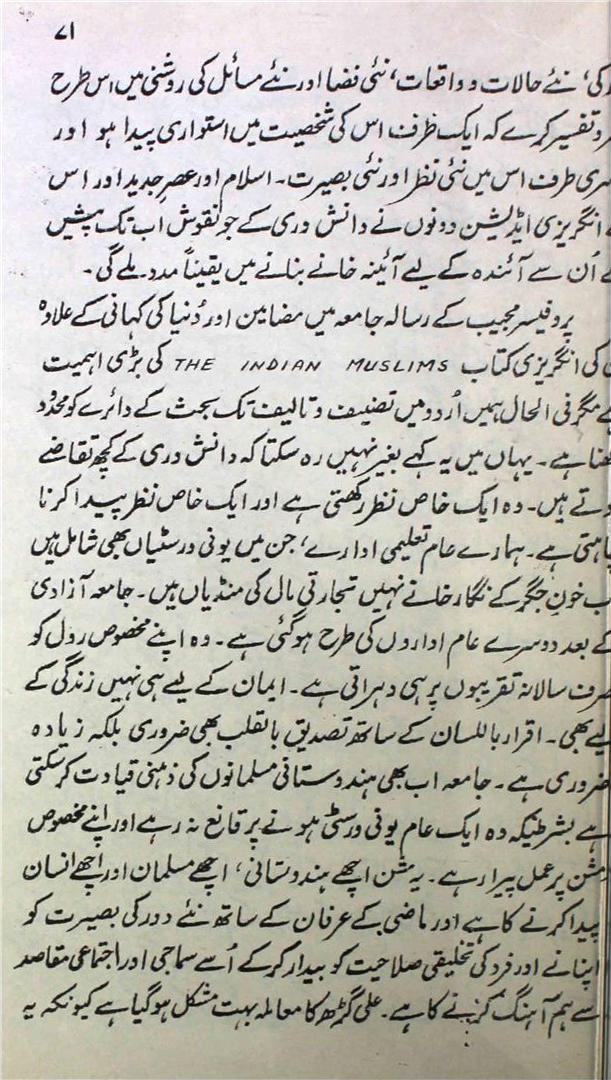 ۷۱
کی، نئے حالات و واقعات، نئی فضا اور نئے مسائل کی روشنی میں اس طرح
و تفسیر کرے کہ ایک طرف اس کی شخصیت میں استواری پیدا ہو اور
سری طرف اس میں نئی نظر اور نئی بصیرت۔ اسلام اور عصرِ جدید اور اس
انگریزی ایڈیشن دونوں نے دانش وری کے جو نقوش اب تک پیش
اُن سے آئندہ کے لیے آئینہ خانے بنانے میں یقیناً مدد ملے گی۔
پروفیسر مجیب کے رسالہ جامعہ میں مضامین اور دُنیا کی کہانی کے علاوہ
کی انگریزی کتاب THE INDIAN MUSLIMS کی بڑی اہمیت
ہے مگر فی الحال ہمیں اُردو میں تصنیف و تالیف تک بحث کے دائرے کو محدود
کھنا ہے۔ یہاں میں یہ کہے بغیر نہیں رہ سکتا کہ دانش وری کے کچھ تقاضے
وتے ہیں۔ وہ ایک خاص نظر رکھتی ہے اور ایک خاص نظر پیدا کرنا
چاہتی ہے۔ ہمارے عام تعلیمی ادارے، جن میں یونی ورسٹیاں بھی شامل ہیں
ب خونِ جگر کے نگار خانے نہیں تجارتی مال کی منڈیاں ہیں۔ جامعہ آزادی
کے بعد دوسرے عام اداروں کی طرح ہو گئی ہے۔ وہ اپنے مخصوص رول کو
صرف سالانہ تقریبوں پر ہی دہراتی ہے۔ ایمان کے لیے ہی نہیں زندگی کے
لیے بھی۔ اقرار باللسان کے ساتھ تصدیق بالقلب بھی ضروری بلکہ زیادہ
ضروری ہے۔ جامعہ اب بھی ہندوستانی مسلمانوں کی ذہنی قیادت کر سکتی
ہے بشرطیکہ وہ ایک عام یونی ورسٹی ہونے پر قانع نہ رہے اور اپنے مخصوص
مشن پر عمل پیرا رہے۔ یہ مشن اچھے ہندوستانی، اچھے مسلمان اور اچھے انسان
پیدا کرنے کا ہے اور ماضی کے عرفان کے ساتھ نئے دور کی بصیرت کو
اپنانے اور فرد کی تخلیقی صلاحیت کو بیدار کر کے اُسے سماجی اور اجتماعی مقاصد
سے ہم آہنگ کرنے کا ہے۔ علی گڑھ کا معاملہ بہت مشکل ہو گیا ہے کیونکہ یہ